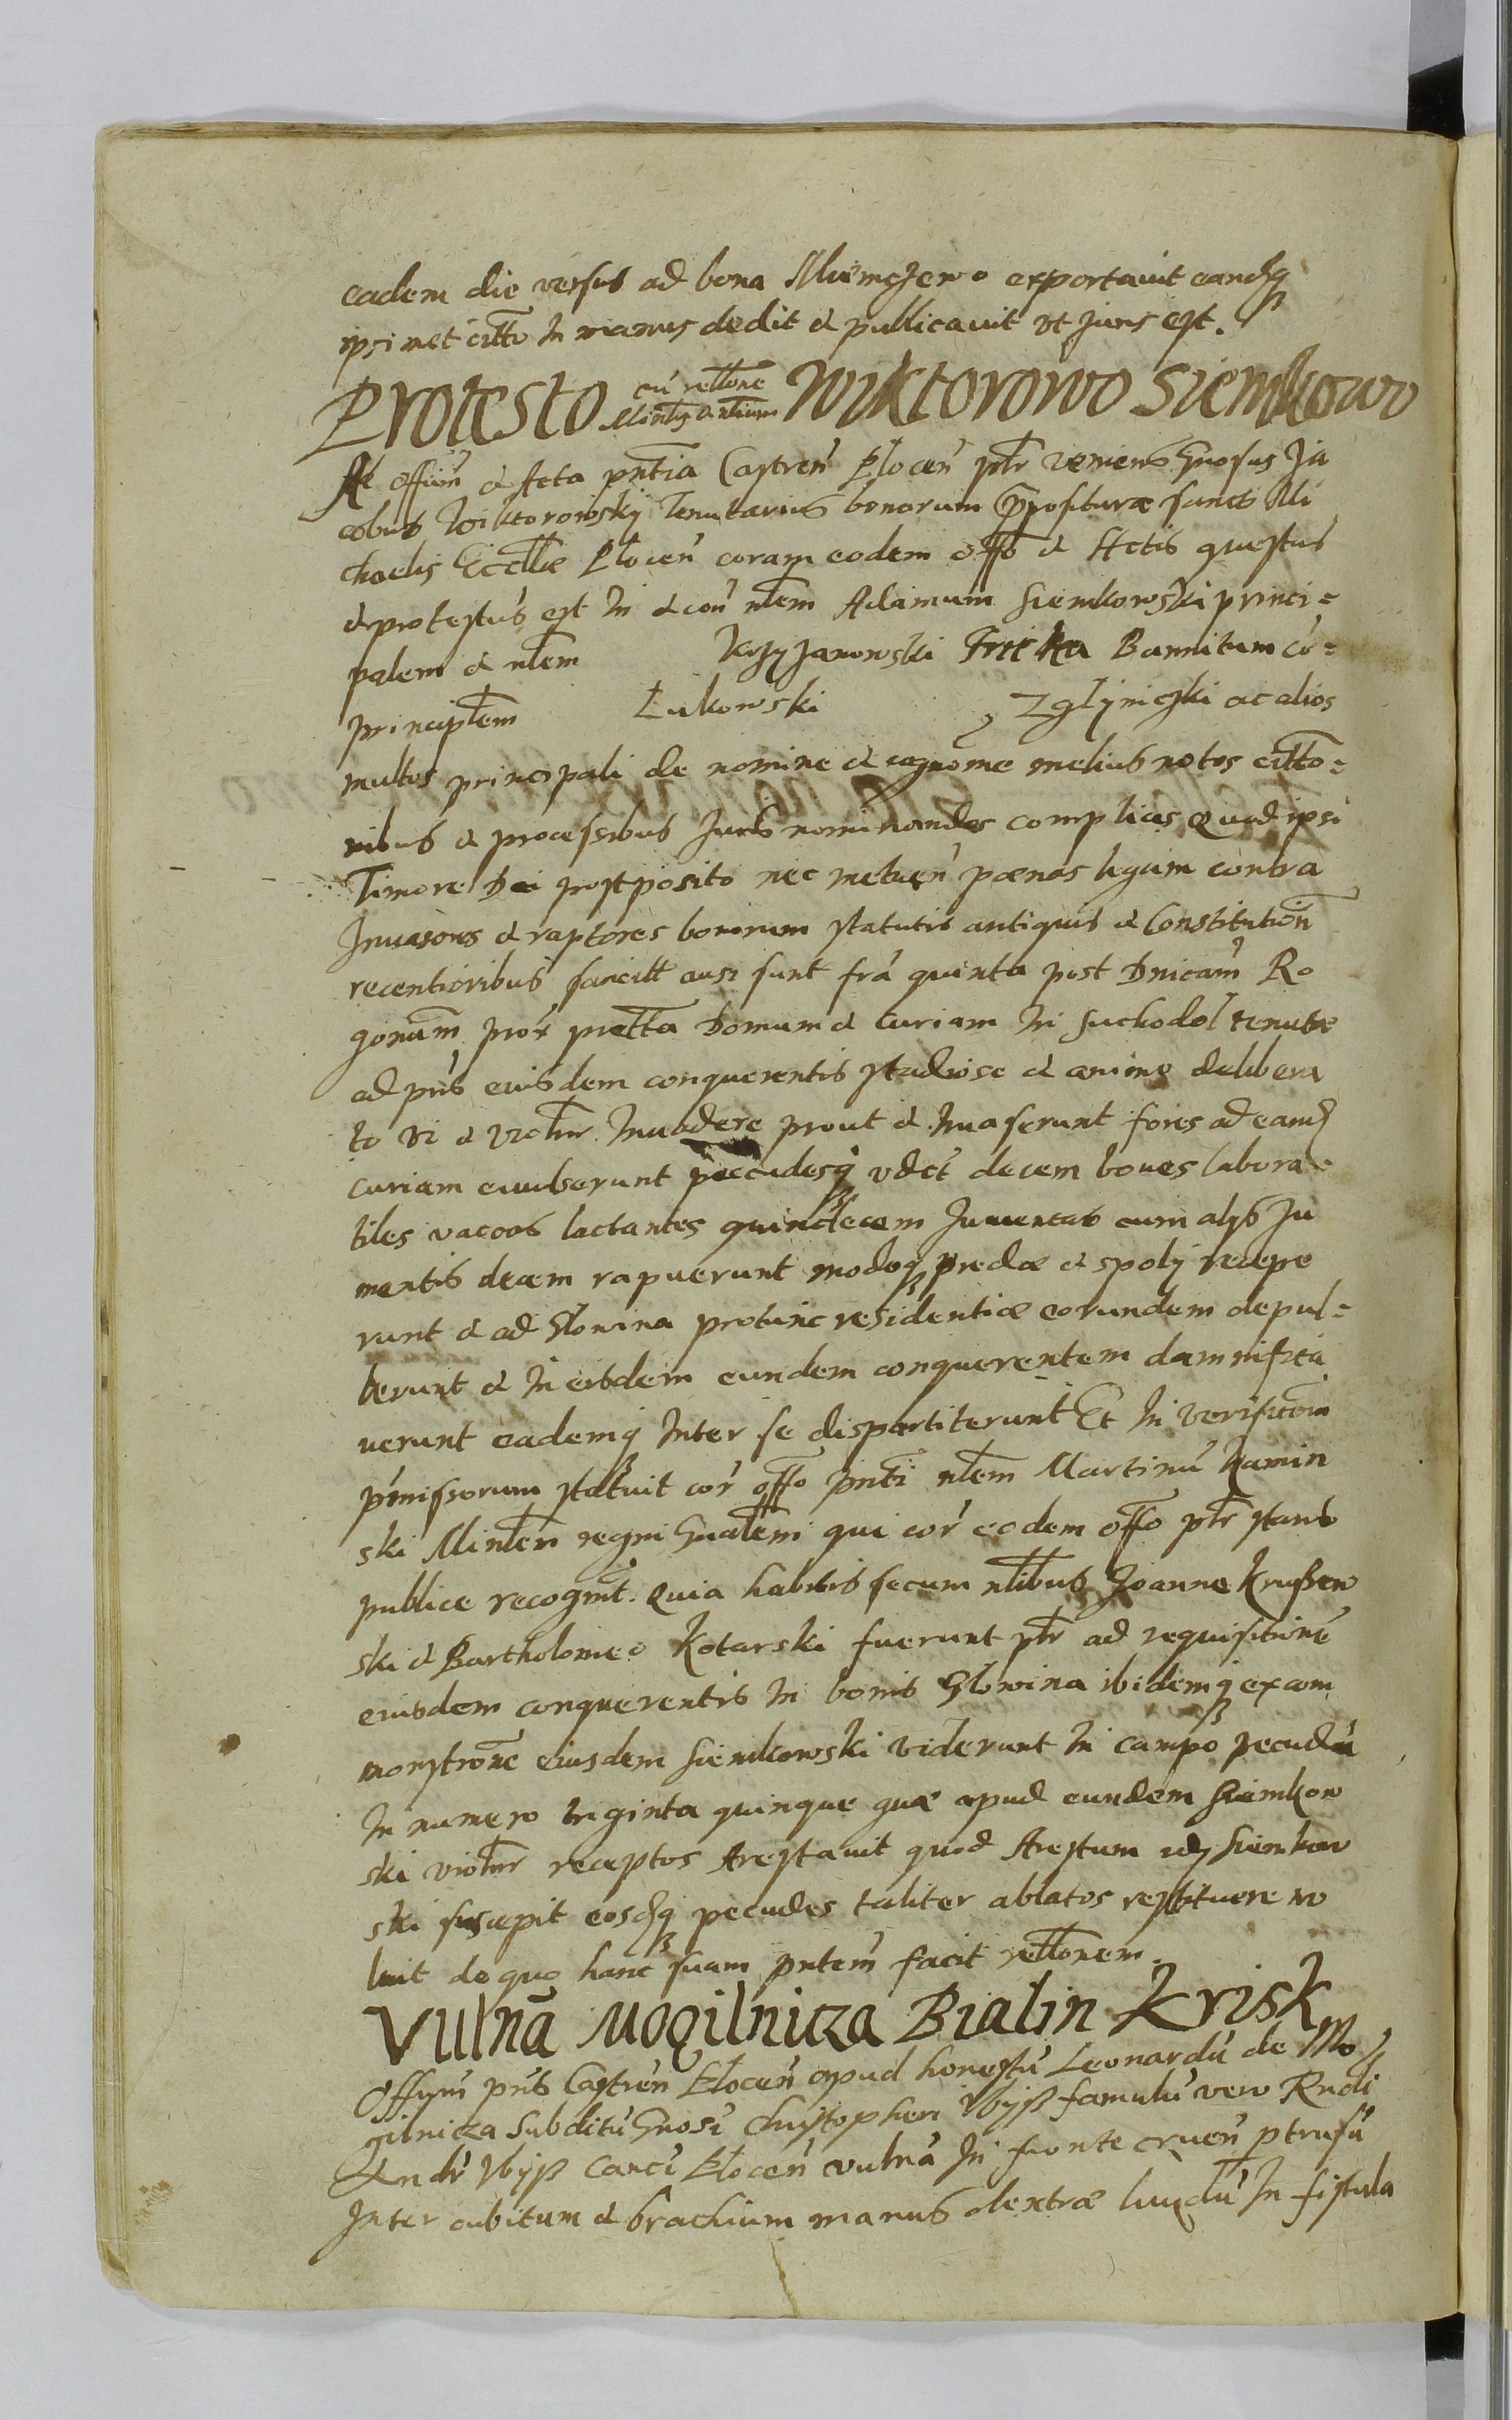 eadem die versus ad bona Miemczewo exportavit eandq
ipsimet citto in manus dedit & publicavit vt juris est.
Protesto cu rellone Mintlis & ntlium Wiktorowo Siemkowo
Ad offiiu & Acta pntia Castren Plocen pltr veniens Gnosus Ja
cobus Wiktorowsky Tenutarius bonorum Praepositurae sancti Mi
chaelis Eccllie Plocen coram eodem offo & Actis questus
& protestus est in & con nlem Adamum Siemkowski princi=
palem & nlem Krzyzanowski Fricka Bannitum co=
principlem Lukowski , Zglyniczki ac alios
multos principali de nomine & cognome melius notos citto=
nibus & processibus Juris nominandos complices Quod ipsi
Timore Dei postposito nec metuen poenas legum contra
Invasores & raptores bonorum statutis antiquis & Constitution
recentioribus sancitt ausi sunt fra quinta post Dnicam Ro
gonum pror pretta Domum & Curiam in Suchodol tenutae
ad pns eiusdem conquerentis studiose & animo delibera
to vi & violntr Invadere prout & Invaserunt fores ad eand
curiam evulserunt peccudesq vdct decem boves labora=
tiles vaccas lactantes quindecem Juvencas cum alys Ju
mentis decem rapuerunt modoq predae & spoly recepe
runt & ad Slonina protunc residentiae eorundem depul=
serunt & in eisdem eundem conquerentem damnifica
verunt eademq Inter se dispartiterunt Et in verificom
pmissorum statuit cor offo pnti nlem Martinu Kamin
ski Mintlem regni Gnalem qui cor eodem offo pltr stans
publice recognt. Quia habitis secum nlibus Joanne Krussew
ski & Bartholomeo Kotarski fuerunt pltr ad requisitione
eiusdem conquerentis in bonis Slonina ibidemq ex com
monstrone eiusdem Siemkowski viderunt in campo pecudu
in numero triginta quinque quae apud eundem Siemkow
ski violntr receptos Arestavit quod Arestum idz Siemkow
ski suscepit eosdq pecudes taliter ablatos restituere no
luit de quo hanc suam pntem facit rellonem.
Vulna Mogilnicza Bialin Krisk
Offium pns Castren Plocen apud honestu Leonardu de Mo
gilnicza Subditu Gnosi Christopheri Vbysz famulu vero Rndi
Andr Vbysz Canci Plocen vulna In fronte cruen ptrusu
Inter cubitum & brachium manus dextrae lividu In fistula